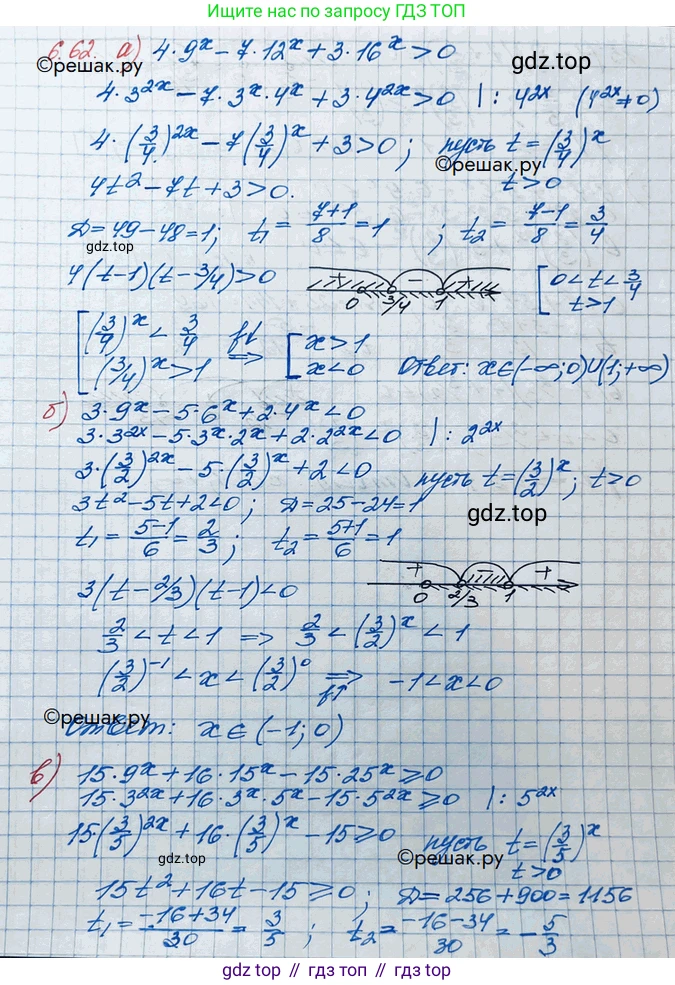 Ищите подробные решения с помощью ГДЗ ТОП
6.62. а) 4·9^x − 7·12^x + 3·16^x > 0
©решак.ру
gdz.top
4·3^{2x} − 7·3^x·4^x + 3·4^{2x} > 0 |: 4^{2x} (4^{2x} ≠ 0)
4·(3/4)^{2x} − 7(3/4)^x + 3 > 0; пусть t = (3/4)^x
©решак.ру
4t² − 7t + 3 > 0. t > 0
D = 49 − 48 = 1; t₁ = (7+1)/8 = 1; t₂ = (7−1)/8 = 3/4
gdz.top
4(t−1)(t−3/4) > 0 + − + 0 3/4 1 [ 0 < t < 3/4
t > 1
[ (3/4)^x < 3/4 f↓ [ x > 1
(3/4)^x > 1 ⇒ x < 0 Ответ: x∈(−∞;0)∪(1;+∞)
б) 3·9^x − 5·6^x + 2·4^x < 0
3·3^{2x} − 5·3^x·2^x + 2·2^{2x} < 0 |: 2^{2x}
3·(3/2)^{2x} − 5·(3/2)^x + 2 < 0 пусть t = (3/2)^x; t > 0
3t² − 5t + 2 < 0; D = 25 − 24 = 1
gdz.top
t₁ = (5−1)/6 = 2/3; t₂ = (5+1)/6 = 1
3(t−2/3)(t−1) < 0 + − + 0 2/3 1
2/3 < t < 1 ⇒ 2/3 < (3/2)^x < 1
(3/2)^{−1} < x < (3/2)^0 ⇒ f↑ −1 < x < 0
©решак.ру
Ответ: x∈(−1; 0)
в) 15·9^x + 16·15^x − 15·25^x ⩾ 0
15·3^{2x} + 16·3^x·5^x − 15·5^{2x} ⩾ 0 |: 5^{2x}
15·(3/5)^{2x} + 16·(3/5)^x − 15 ⩾ 0 пусть t = (3/5)^x
gdz.top
©решак.ру
t > 0
15t² + 16t − 15 ⩾ 0; D = 256 + 900 = 1156
t₁ = (−16+34)/30 = 3/5; t₂ = (−16−34)/30 = −5/3
gdz top // гдз топ // гдз.top // gdz.top